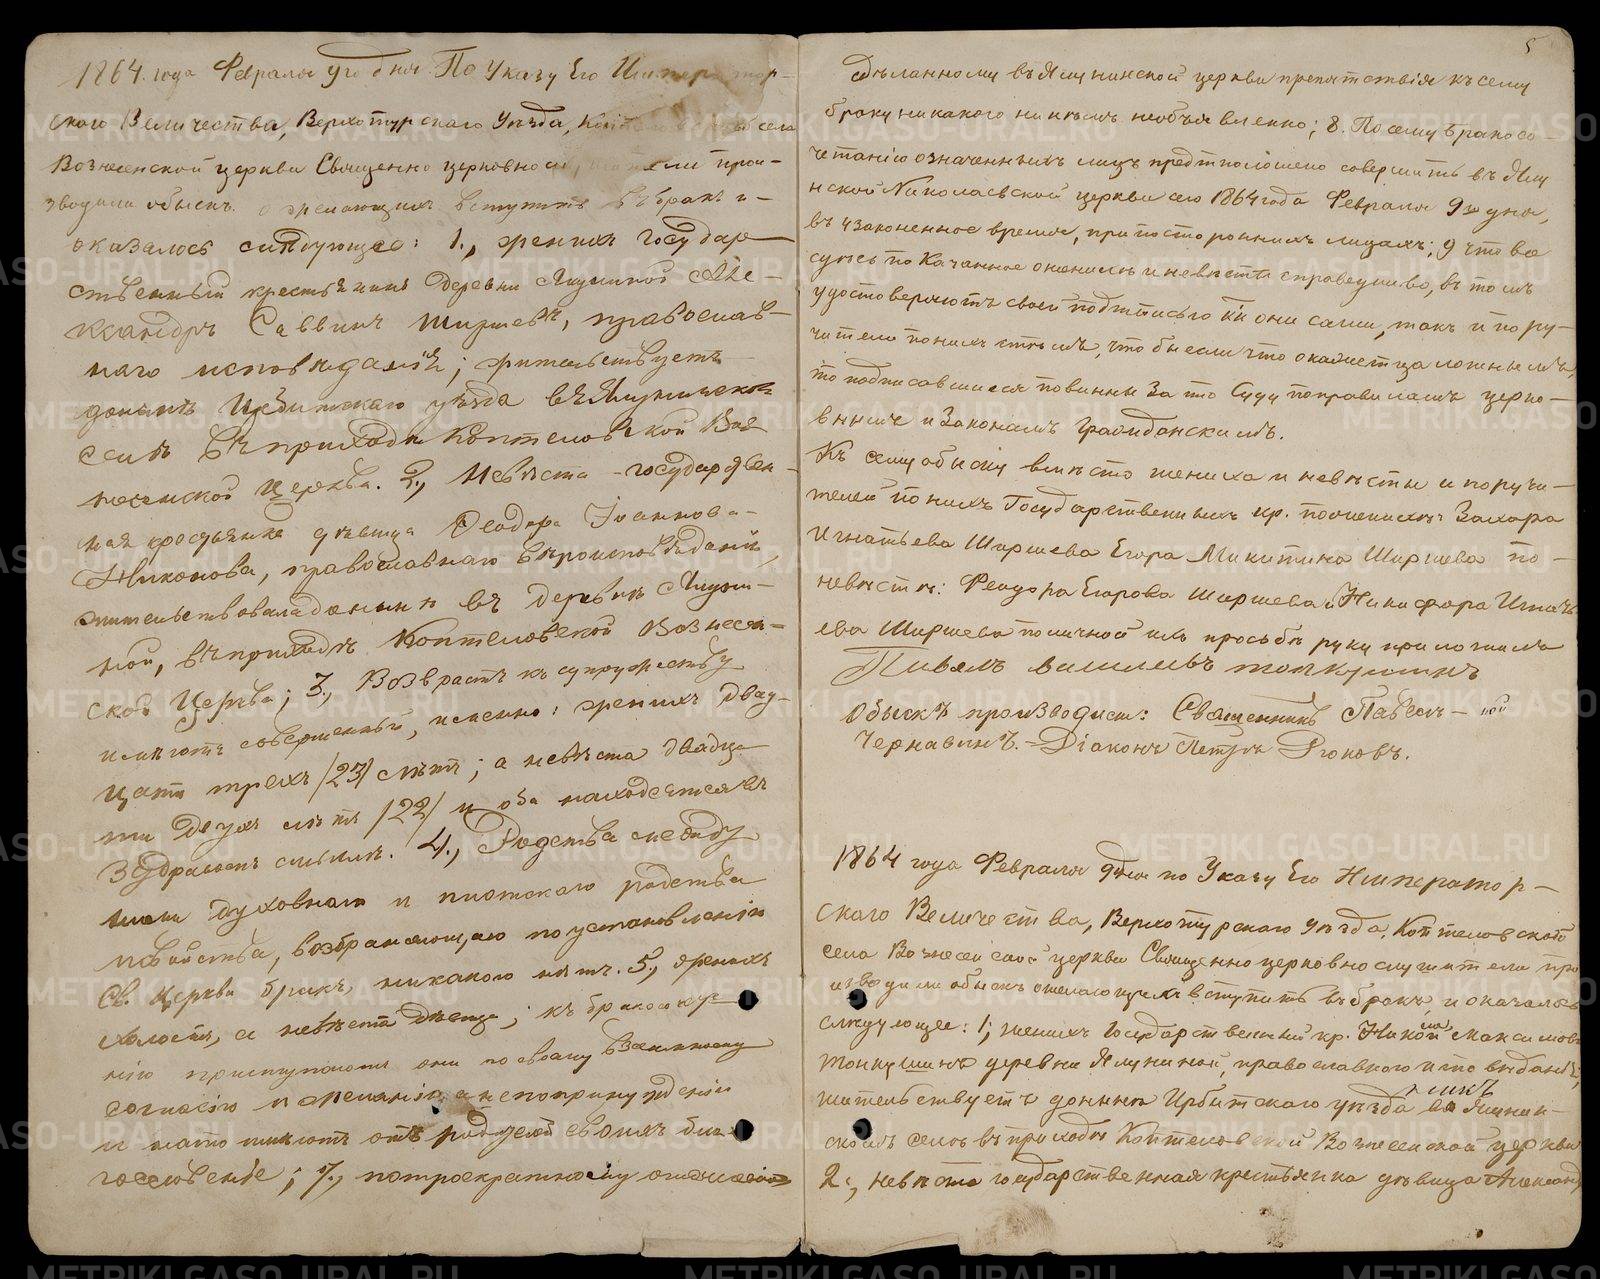 1864. года Февраля 9го дня По Указу Его Импера тор-
скаго Величества, Верхотурскаго Уѣзда, села
Вознесенской церкви Священно церковнослу ли прои-
зводили обыскъ о желающихъ вступить въ бракъ и
оказалось слѣдующее: 1., женихъ Государ
ственный крестьянинъ деревни Ялуниной Але-
ксандръ Саввинъ Ширшевъ, православ-
наго исповѣданія; жительствуетъ
донынѣ Ирбитскаго уѣзда въ Ялунинско
селѣ въ приходѣ Коптеловской Воз
несенской Церкви. 2., Невѣста - государствен-
ная крестьянка дѣвица Ѳеодора Іоаннова-
Никонова, православнаго вѣроисповѣданія,
жительствовала донынѣ въ деревнѣ Ялуни-
ной, въ приходѣ Коптеловской Вознесен-
ской Церкви; 3., Возрастъ къ супружеству
имѣютъ совершенный, именно: женихъ двад-
цати трехъ /23/ лѣтъ; а невѣста двадца
ти двухъ лѣтъ /22/ и оба находятся въ
здравомъ смыслѣ. 4., Родства между
ими духовнаго и плотскаго родства
и свойства, возбраняющаго по установленію
Св. Церкви бракъ, никакого нѣтъ. 5., женихъ
холостъ, а невѣста дѣвица; къ бракосоче
нію приступаютъ они по своему взаимному
согласію и желанію, а не по принужденію
и на то имѣютъ отъ родителей своихъ бла
гословеніе; 7., по троекратному оглашенію
5
сдѣланному въ Ялунинской церкви препятствія къ сему
браку никакого ни кѣмъ необъявленно; 8. По сему бракосо-
четанію означенныхъ лицъ предположено совершить въ Ялу
нской Николаевской церкви сего 1864 года Февраля 9го дня,
въ узаконенное время, при постороннихъ лицахъ; 9 что все
сдѣсь показанное о женихѣ и невѣстѣ справедливо, въ томъ
удостовѣряютъ своею подписью какъ они сами, такъ и пору-
чители по нихъ стѣмъ, что бы если что окажется ложнымъ,
то подписавшиеся повинны за то Суду по правиламъ церко-
внымъ и Законамъ Гражданскимъ.
Къ сему обыску вмѣсто жениха и невѣсты и поручи-
телей по нихъ Государственныхъ кр. по женихѣ: Захара
Игнатьева Ширшева Егора Микитина Ширшева по-
невѣсты: Феодора Егорова Ширшева и Никифора Игнать
ева Ширшева по личной ихъ просьбѣ руку приложилъ
Павелъ Василевъ Толкушинъ
Обыскъ производили: Священникъ Павелъ - ной
Чернавинъ. - Діаконъ Петръ Роковъ.
1864 года Февраля 9 дня по Указу Его Император-
скаго Величества, Верхотурскаго Уѣзда, Коптеловской
села Вознесенской церкви Священно церковно служители про
изводили обыскъ о желающихъ вступить въ бракъ, и оказалось
слѣдующее: 1; женихъ Государственный кр. Никола Максимовъ
Толкушинъ деревни Ялуниной, православного исповѣданія,
жительствуетъ донынѣ Ирбитскаго уѣзда въ Ялунин-
скомъ селѣ въ приходѣ Коптеловской Вознесенской церкви
2., невѣста государственная крестьянка дѣвица Александ